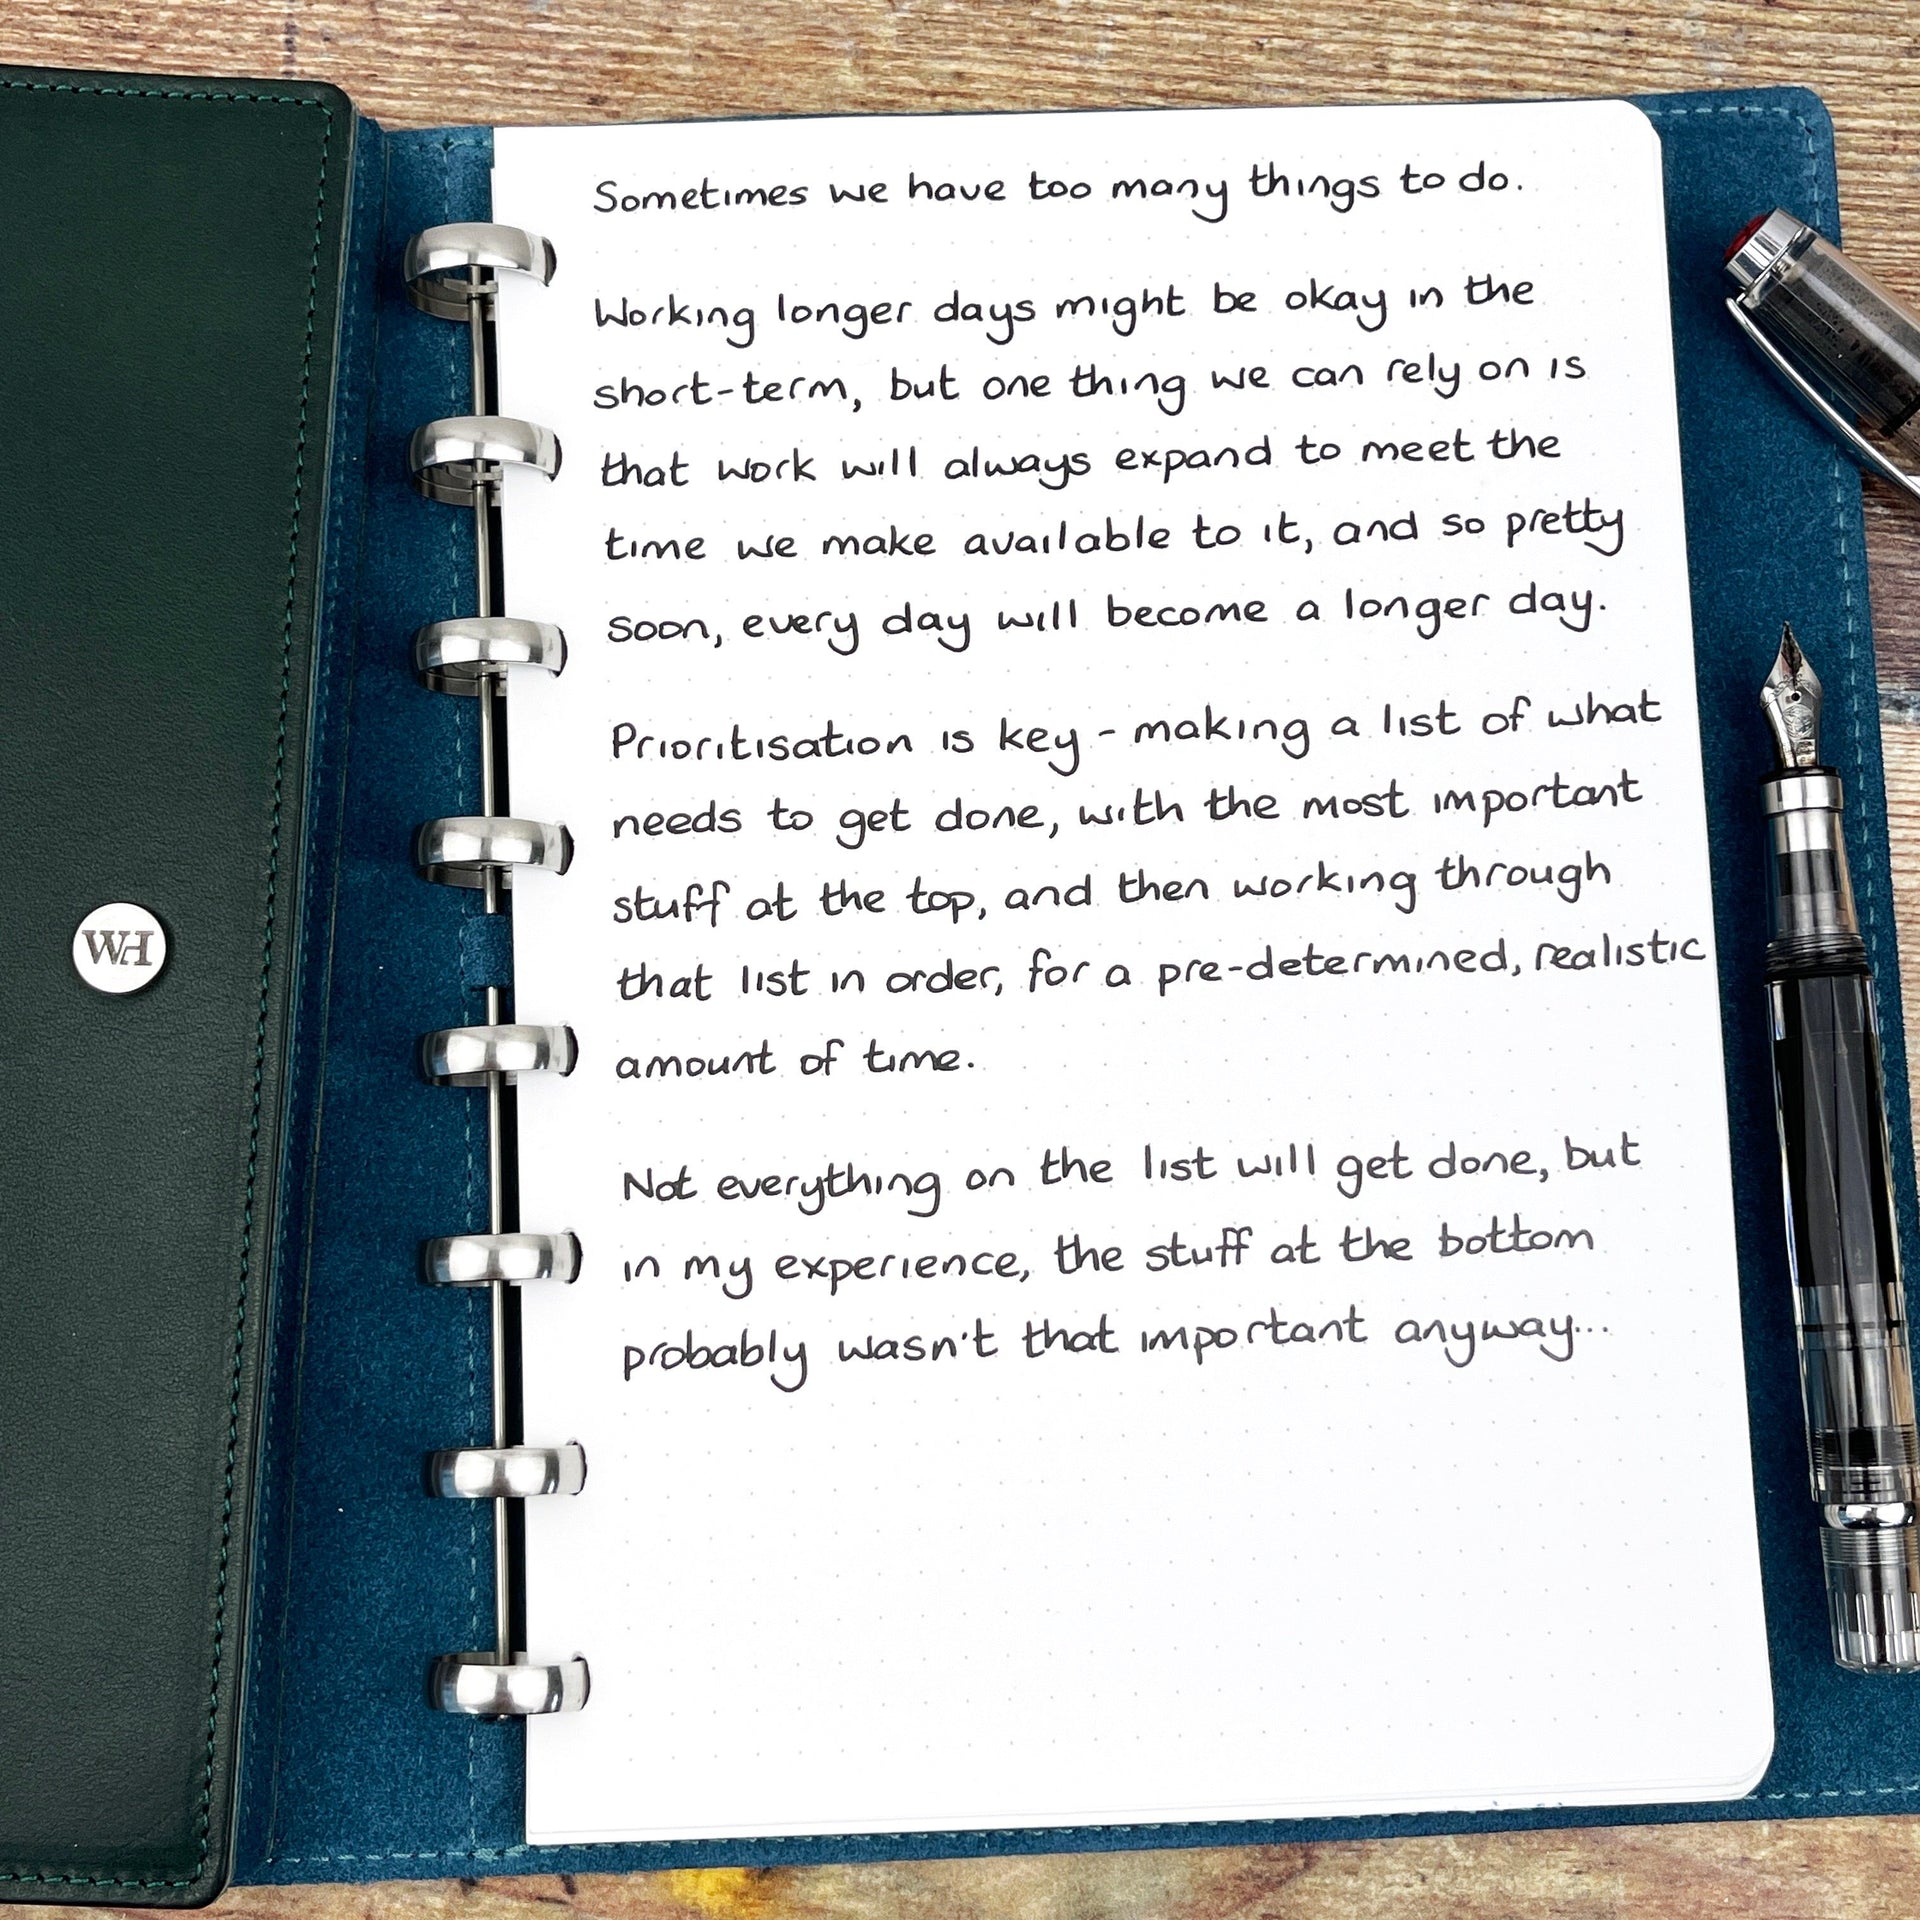 Sometimes we have too many things to do.
Working longer days might be okay in the
short-term, but one thing we can rely on is
that work will always expand to meet the
time we make available to it, and so pretty
soon, every day will become a longer day.
Prioritisation is key - making a list of what
needs to get done, with the most important
stuff at the top, and then working through
that list in order, for a pre-determined, realistic
amount of time.
Not everything on the list will get done, but
in my experience, the stuff at the bottom
probably wasn't that important anyway...
WH